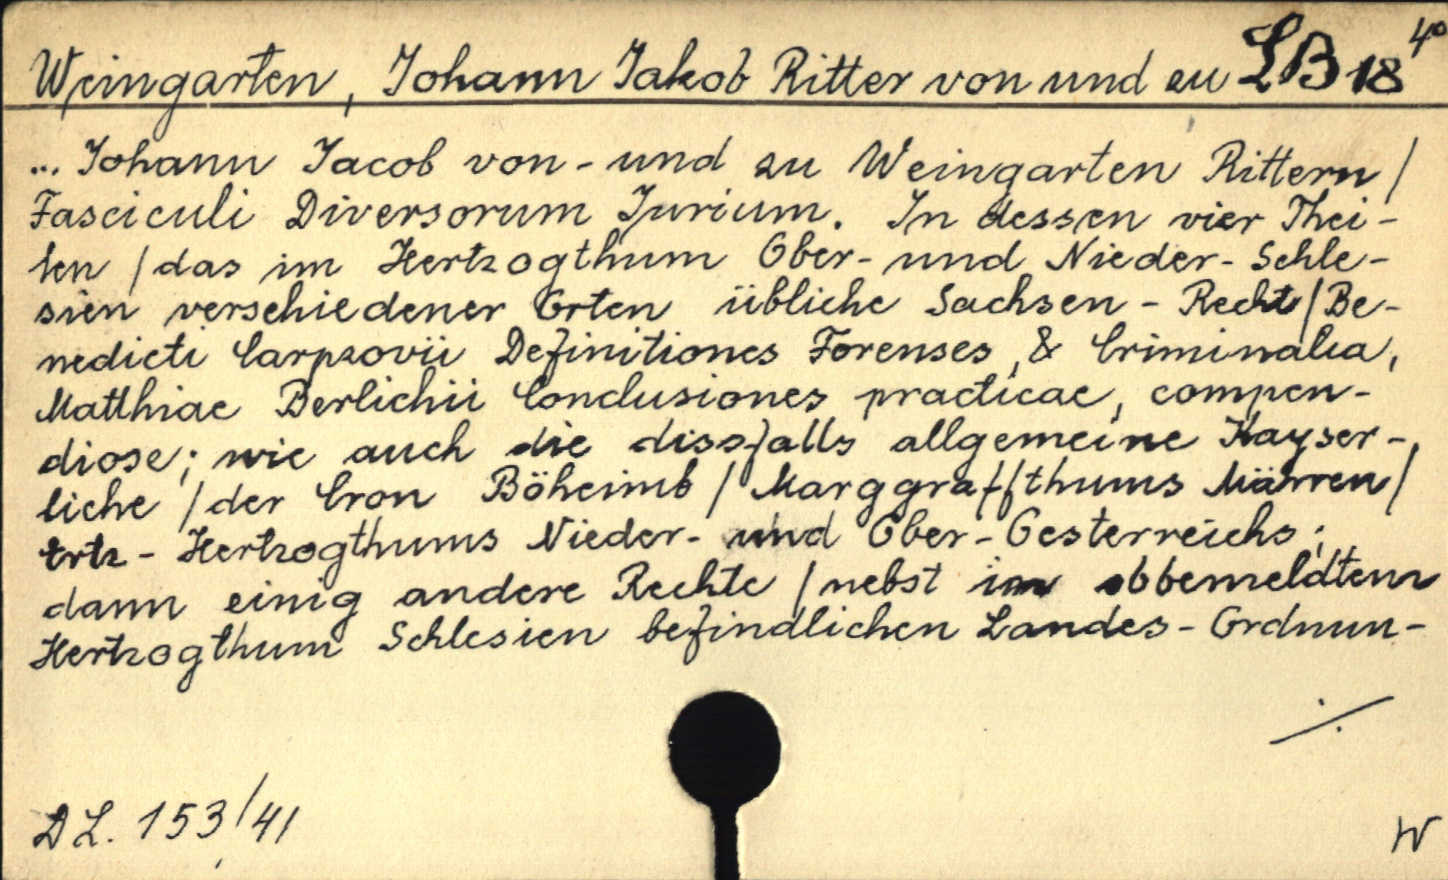 Weingarten, Johann Jakob Ritter von und zu LB 18 4°
... Johann Jacob von - und zu Weingarten Rittern /
Fasciculi Diversorum Jurium. In dessen vier Thei-
len / das im Hertzogthum Ober- und Nieder- Schle-
sien verschiedener Orten übliche Sachsen - Recht / Be-
nedicti Carpzovii Definitiones Forenses, & Criminalia,
Matthiae Berlichii Conclusiones practicae, compen-
diose; wie auch die dissfalls allgemeine Kayser-
liche / der Cron Böheimb / Marggraffthums Mährren /
Ertz - Hertzogthums Nieder- und Ober- Oesterreichs;
dann einig andere Rechte / nebst im obbemeldtem
Hertzogthum Schlesien befindlichen Landes - Ordnun-
./.
DL. 153/41
W